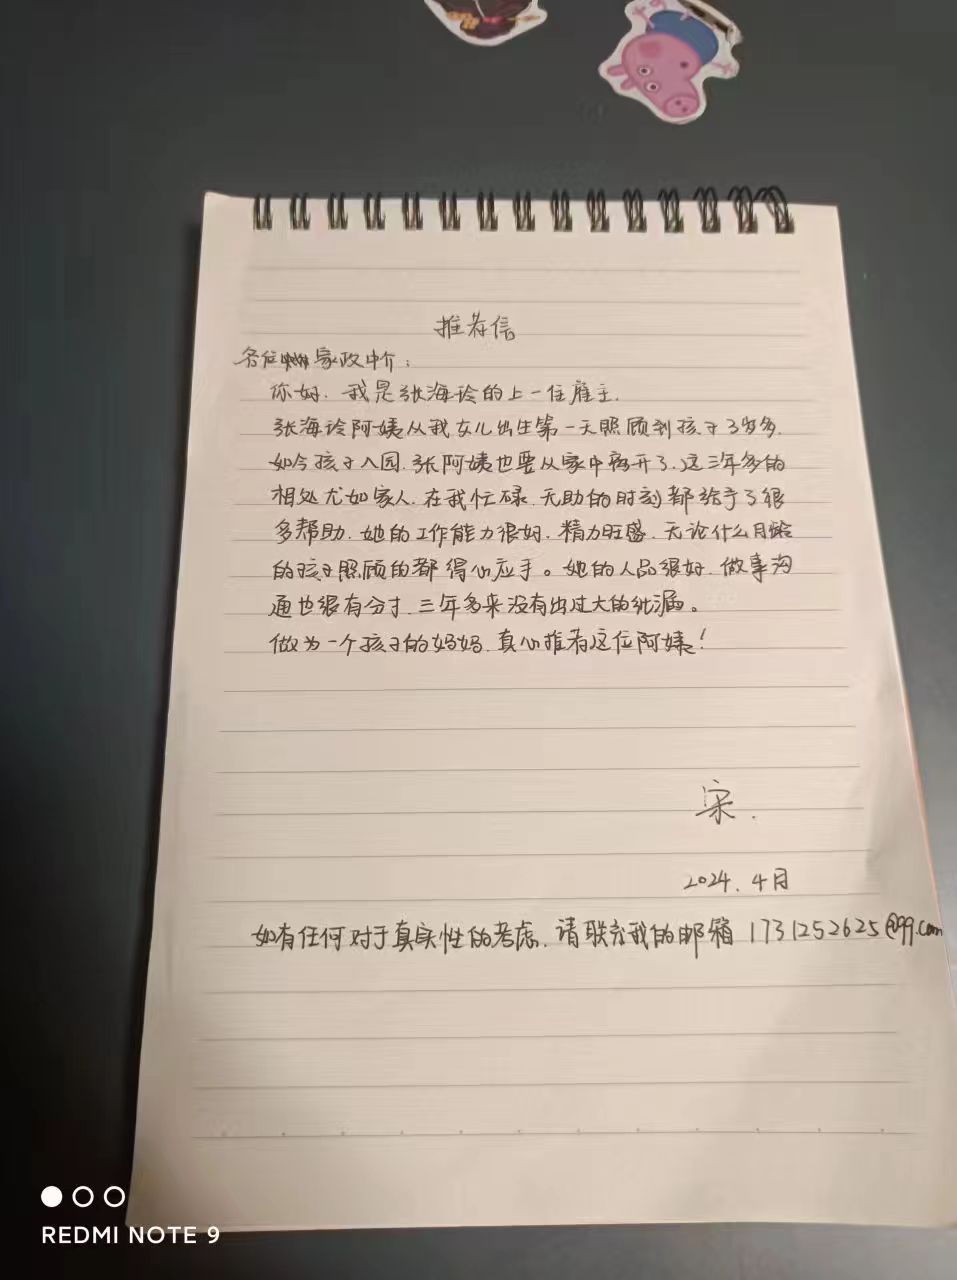 推荐信
各位家政中介：
你好．我是张海玲的上一任雇主．
张海玲阿姨从我女儿出生第一天照顾到孩子3岁多．
如今孩子入园．张阿姨也要从家中离开了．这三年多的
相处尤如家人．在我忙碌．无助的时刻都给予了很
多帮助．她的工作能力很好．精力旺盛．无论什么月龄
的孩子照顾的都得心应手。她的人品很好．做事沟
通也很有分寸．三年多来没有出过大的纰漏。
做为一个孩子的妈妈．真心推荐这位阿姨！
宋．
2024．4月
如有任何对于真实性的考虑．请联系我的邮箱1731252625@qq.com
REDMI NOTE 9